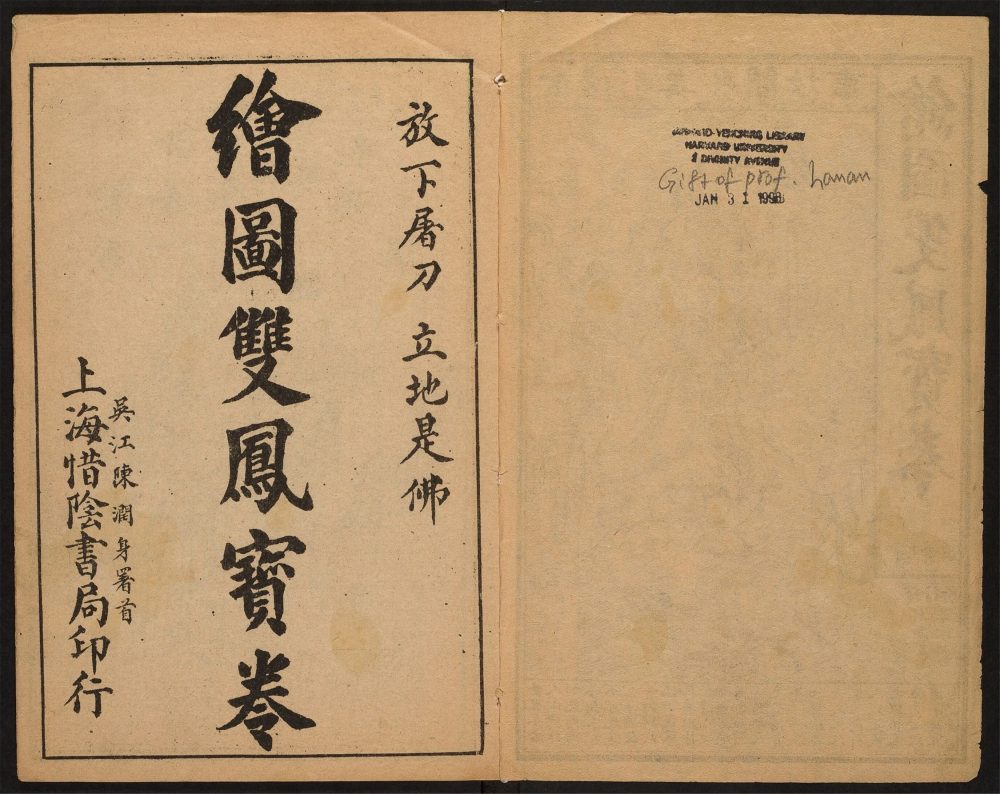 放下屠刀 立地是佛
繪圖雙鳳寳卷
吳江陳潤身署首
上海惜陰書局印行
HARVARD-YENCHING LIBRARY
HARVARD UNIVERSITY
2 DIVINITY AVENUE
Gift of prof. Hanan
JAN 31 1998